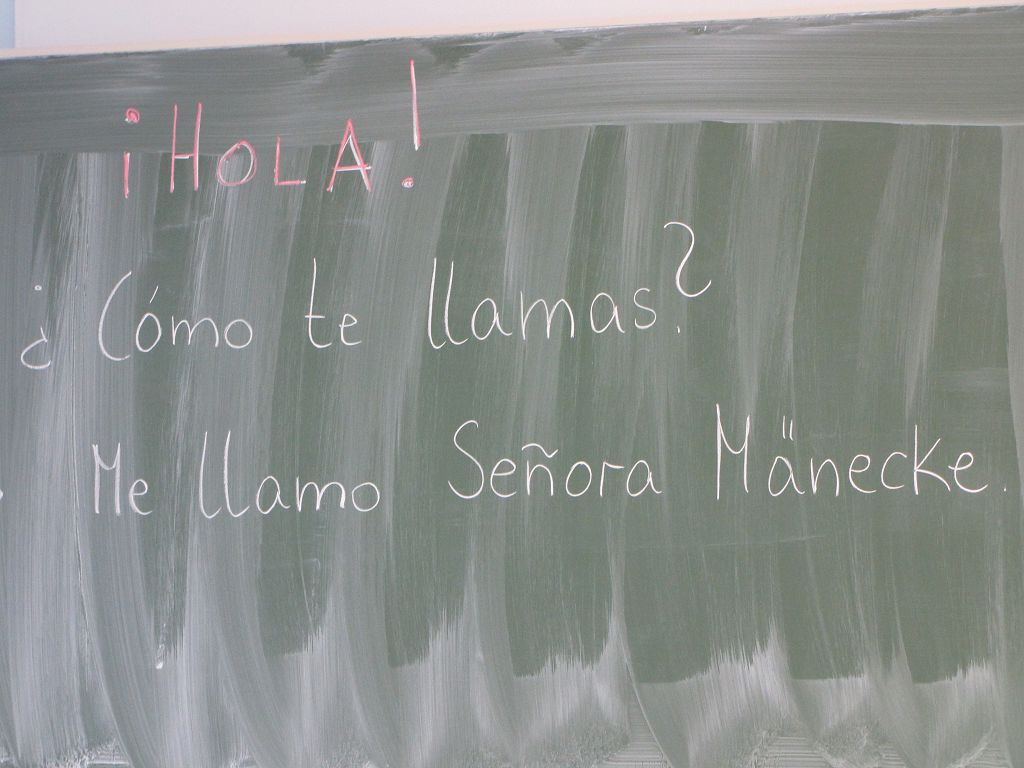 ¡HOLA!
¿Cómo te llamas?
Me llamo Señora Mänecke.